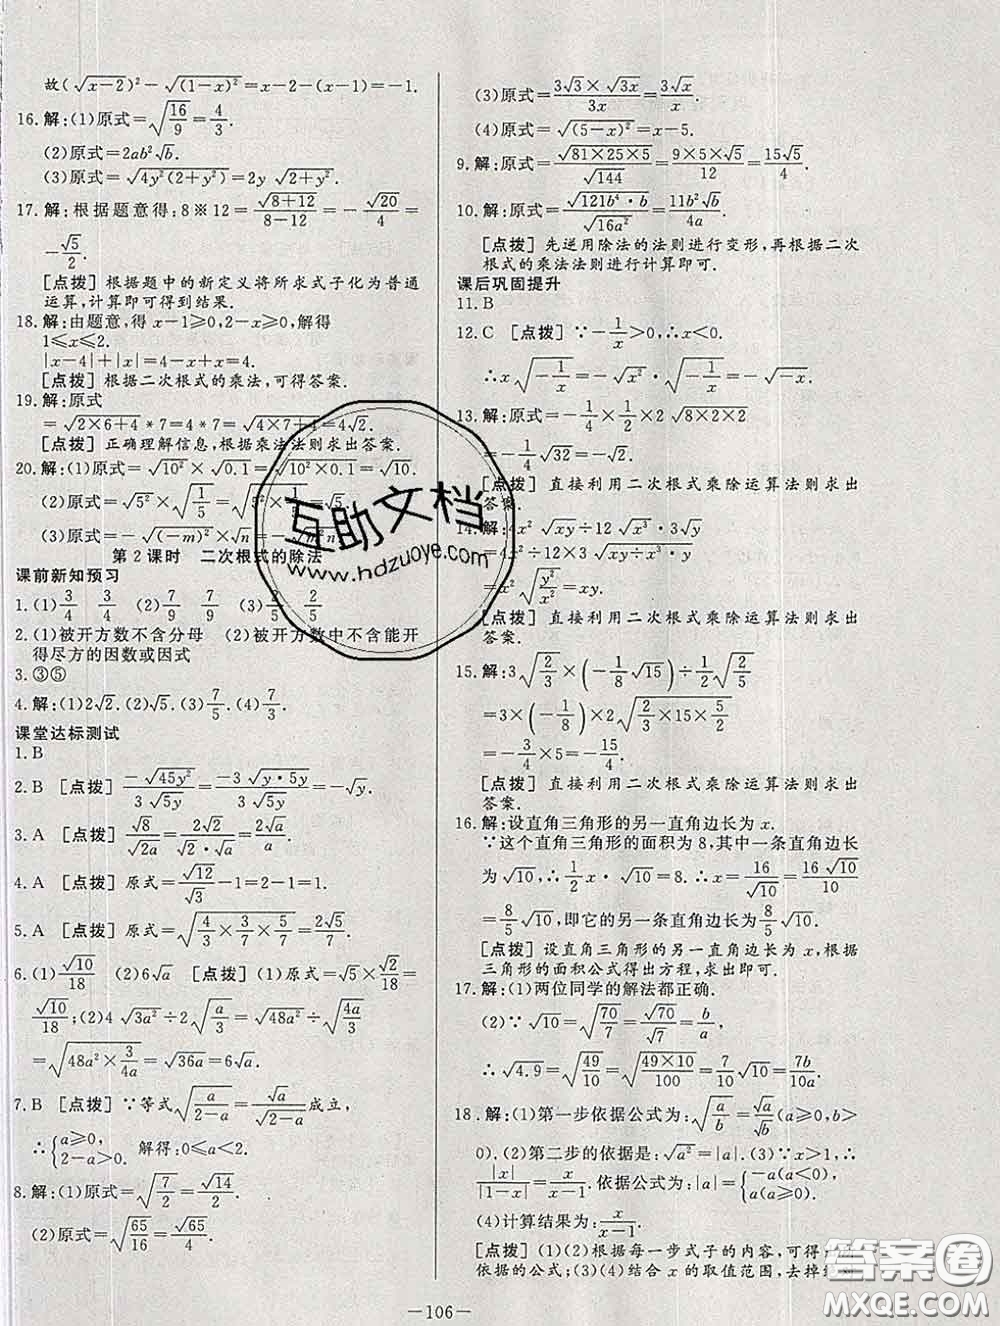 故(√(x-2))²-√((1-x)²)=x-2-(x-1)=-1.
16.解:(1)原式=√(16/9)=4/3.
(2)原式=2ab²√b.
(3)原式=√(4y²(2+y²))=2y√(2+y²).
17.解:根据题意得:8※12=√(8+12)/(8-12)=-√20/4=
-√5/2.
[点拨]根据题中的新定义将所求式子化为普通
运算,计算即可得到结果.
18.解:由题意,得x-1≥0,2-x≥0,解得
1≤x≤2.
|x-4|+|x|=4-x+x=4.
[点拨]根据二次根式的乘法,可得答案.
19.解:原式
=√(2×6+4)*7=4*7=√(4×7+4)=4√2.
[点拨]正确理解信息,根据乘法法则求出答案.
20.解:(1)原式=√(10²)×√0.1=√(10²×0.1)=√10.
(2)原式=√(5²)×√(1/5)=√(5²×1/5)=√5.
(3)原式=-√((-m)²)×√n=-√(m²n).
第2课时 二次根式的除法
课前新知预习
1.(1)3/4 3/4 (2)7/9 7/9 (3)2/5 2/5
2.(1)被开方数不含分母 (2)被开方数中不含能开
得尽方的因数或因式
3.③⑤
4.解:(1)2√2.(2)√5.(3)7/5.(4)7/3.
课堂达标测试
1.B
2.B [点拨]-√(45y²)/(3√(5y))=-3√(y·5y)/(3√(5y))=-√y.
3.A [点拨]√8/√(2a)=2√2/(√2·√a)=2√a/a.
4.A [点拨]原式=√12/√3-1=2-1=1.
5.A [点拨]原式=√(4/3×3/7×5/7)=2√5/7.
6.(1)√10/18 (2)6√a [点拨](1)原式=√5×√2/18=
√10/18;(2)4√(3a²)÷2√(a/3)=√(48a²)÷√(4a/3)
=√(48a²×3/(4a))=√(36a)=6√a.
7.B [点拨]∵等式√(a/(2-a))=√a/√(2-a)成立,
∴{a≥0, 2-a>0. 解得:0≤a<2.
8.解:(1)原式=√(7/2)=√14/2.
(2)原式=√(65/16)=√65/4.
(3)原式=3√3×√(3x)/(3x)=3√x/x.
(4)原式=√((5-x)²)=x-5.
9.解:原式=√(81×25×5)/√144=9×5×√5/12=15√5/4.
10.解:原式=√(121b⁴·b)/√(16a²)=11b²√b/(4a).
[点拨]先逆用除法的法则进行变形,再根据二次
根式的乘法法则进行计算即可.
课后巩固提升
11.B
12.C [点拨]∵-1/x>0,∴x<0.
∴x√(-1/x)=-√(x²)·√(-1/x)=-√(-x).
13.解:原式=-1/4×1/2×2√(8×2×2)
=-1/4√32=-√2.
[点拨]直接利用二次根式乘除运算法则求出
答案.
14.解:4x²√(xy)÷12√(x³)·3√y
=4x²÷12×3√(xy÷x³·y)
=x²√(y²/x²)=xy.
[点拨]直接利用二次根式乘除运算法则求出
答案.
15.解:3√(2/3)×(-1/8√15)÷1/2√(2/5)
=3×(-1/8)×2√(2/3×15×5/2)
=-3/4×5=-15/4.
[点拨]直接利用二次根式乘除运算法则求出
答案.
16.解:设直角三角形的另一直角边长为x.
∵这个直角三角形的面积为8,其中一条直角边长
为√10,∴1/2x·√10=8.∴x=16/√10=16√10/10
=8/5√10,即它的另一条直角边长为8/5√10.
[点拨]设直角三角形的另一直角边长为x,根据
三角形的面积公式得出方程,求出即可.
17.解:(1)两位同学的解法都正确.
(2)∵√10=√(70/7)=√70/√7=b/a,
∴√4.9=√(49/10)=√(49×10/100)=7/10√10=7b/(10a).
18.解:(1)第一步依据公式为:√(a/b)=√a/√b(a≥0,b>
0).(2)第二步的依据是:√(a²)=|a|.(3)∵x>1,∴
|x|/|1-x|=x/(x-1).依据公式为:|a|={-a(a<0), a(a≥0).
(4)计算结果为:x/(x-1).
[点拨](1)(2)根据每一步式子的内容,可得
依据的公式;(3)(4)结合x的取值范围,去掉绝对
—106—
互助文档
www.hdzuoye.com
答案圈
MXQE.COM